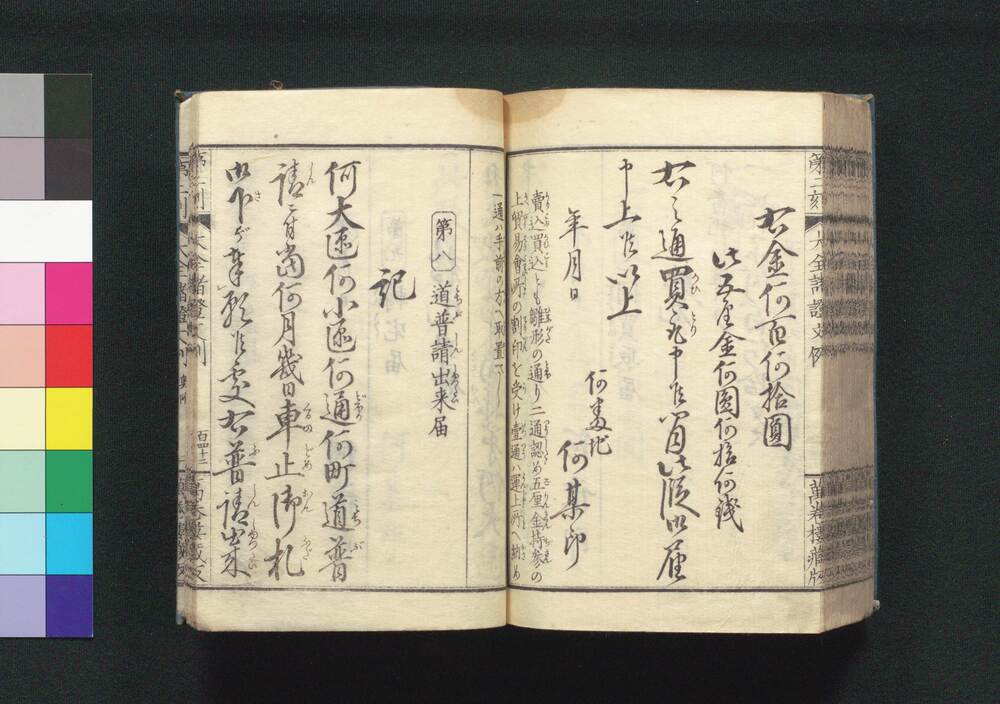 第二刻 大全諸證文例 萬巻樓藏版
右金何百何拾圓
此五厘金何圓何拾何錢
右之通買取申候間此段御届
申上候以上
年月日
何番地
何某印
賣込買込とも雛形の通り二通認め五厘金持参の
上貿易會所の割印を受け壹通ハ運上所へ納め
一通ハ手前の方へ取置べし
第八 道普請出来届
記
何大區何小區何通何町道普
請ニ付當何月幾日車止御札
御下ゲ奉願候処右普請出来
大全諸證文例
百四十二